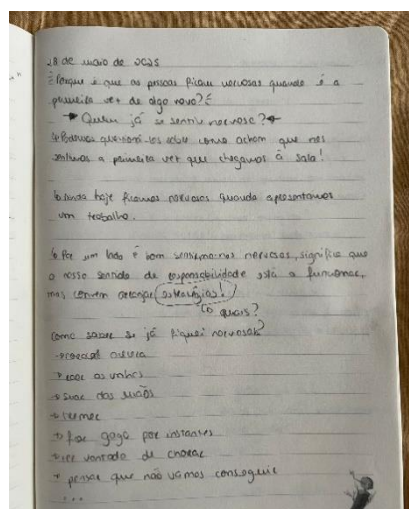 28 de maio de 2025
Porque é que as pessoas ficam nervosas quando é a
primeira vez de algo novo?
→ Quem já se sentiu nervoso? ←
↳ Podemos questioná-los sobre como acham que nos
sentimos a primeira vez que chegamos à sala!
↳ Ainda hoje ficamos nervosos quando apresentamos
um trabalho.
↳ Por um lado é bom sentirmo-nos nervosos, significa que
o nosso sentido de responsabilidade está a funcionar,
mas convém arranjar estratégias!
↳ quais?
Como saber se já fiquei nervosa?
→ coração
→ roer as unhas
→ suar das mãos
→ tremer
→ ficar gago por instantes
→ ter vontade de chorar
→ pensar que não vamos conseguir
...